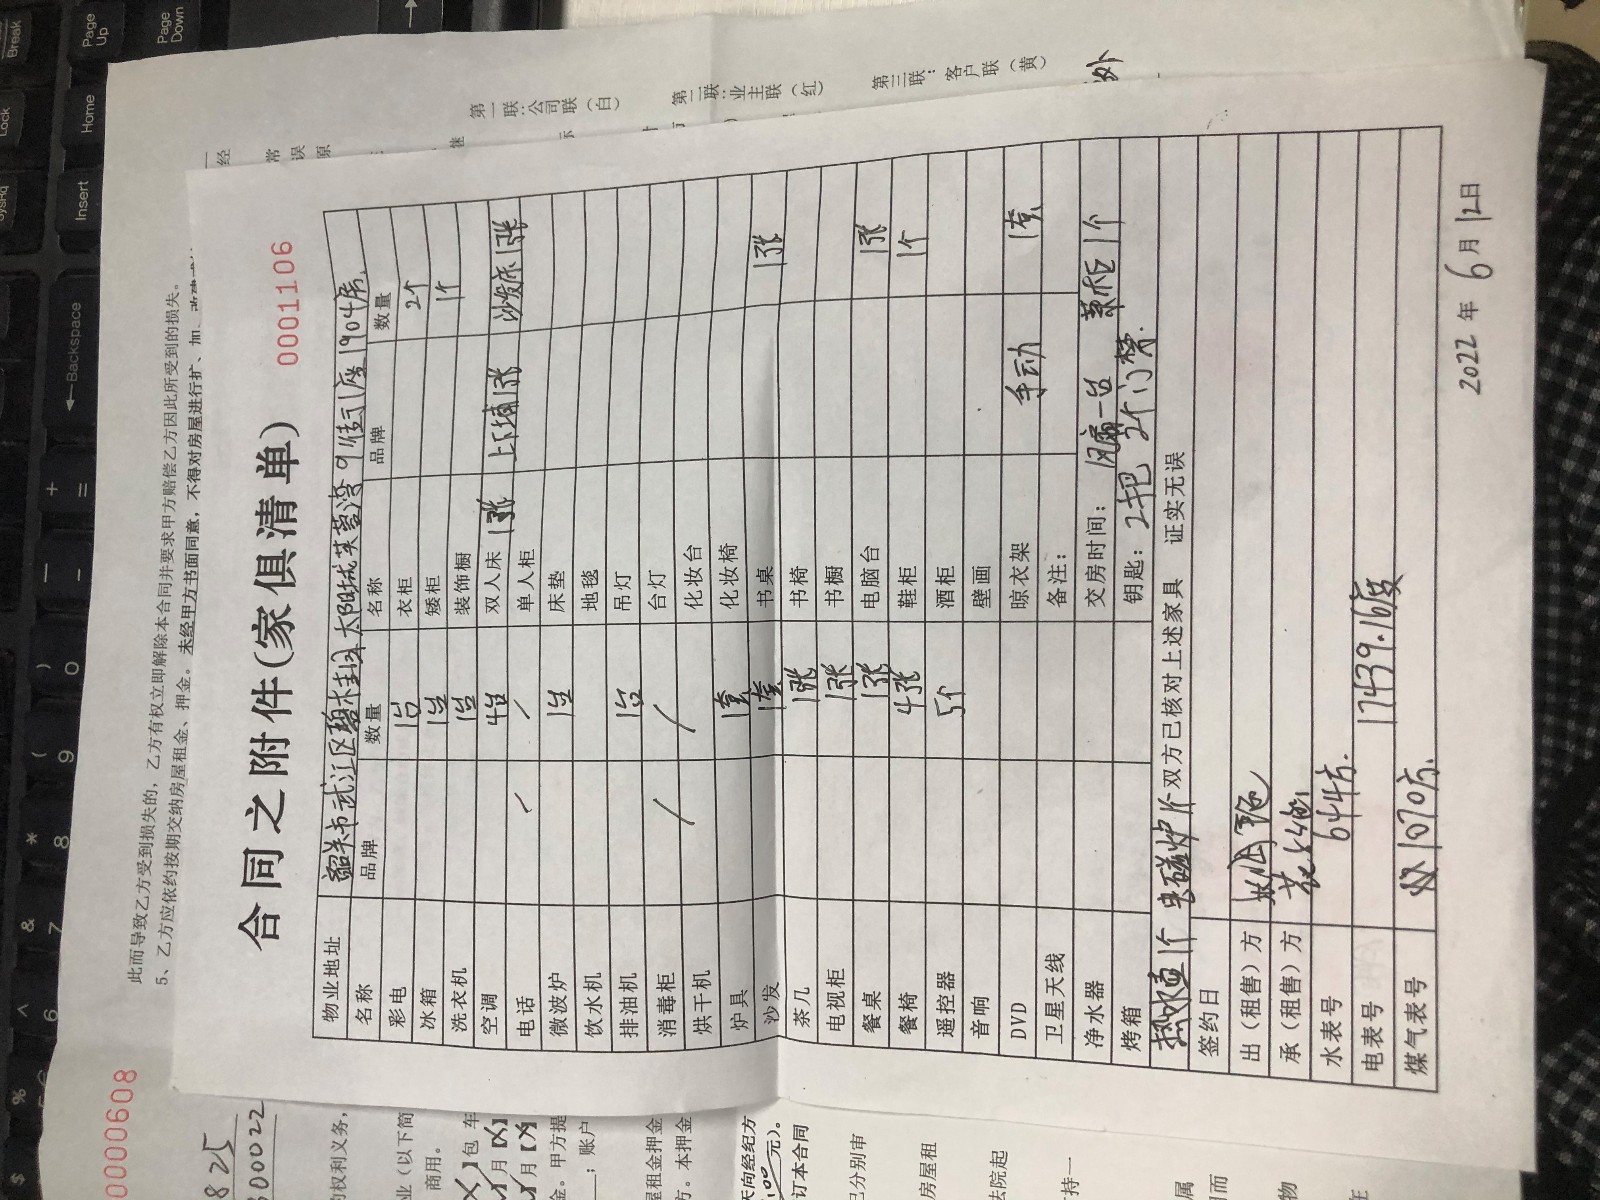 此而导致乙方受到损失的，乙方有权立即解除本合同并要求甲方赔偿乙方因此所受到的损失。
5、乙方应依约按期交纳房屋租金、押金。未经甲方书面同意，不得对房屋进行扩、加、
合同之附件(家俱清单)
0001106
物业地址 韶关市武江区碧水 太阳城芙蓉湾9 1座1904房.
名称 品牌 数量 名称 品牌 数量
彩电 1台 衣柜 2个
冰箱 1台 矮柜 1个
洗衣机 1台 装饰橱
空调 4台 双人床 1张 上下铺1张 沙发床1张
电话 / / 单人柜
微波炉 1台 床垫
饮水机 地毯
排油机 1台 吊灯
消毒柜 / / 台灯
烘干机 化妆台
炉具 1套 化妆椅
沙发 1套 书桌 1张
茶几 1张 书椅
电视柜 1张 书橱
餐桌 1张 电脑台 1张
餐椅 4张 鞋柜 1个
遥控器 5个 酒柜
音响 壁画
DVD 晾衣架 手动 1套
卫星天线 备注：
净水器 交房时间： 风扇一台 菜柜1个
烤箱 钥匙： 2把 2个门禁.
热水壶1个 电磁炉1个 双方已核对上述家具 证实无误
签约日
出（租售）方
承（租售）方
水表号 644方.
电表号 17439.16度
煤气表号 1070方.
2022 年 6 月 12 日
第一联：公司联（白）
第二联：业主联（红）
第三联：客户联（黄）
0000608
825
300022
的权利义务，
业（以下简
商用。
】包 车
月【X】
月【X】
金。甲方提
；账户
屋租金押金
方。本押金
天向经纪方
00元）。
订本合同
已分别审
房屋租
法院起
持一
属
物
Break
Page Up
Page Down
Lock
Home
SysRq
Insert
Backspace
+ =
— -
) 0
( 9
* 8
& 7
^ 6
%
$